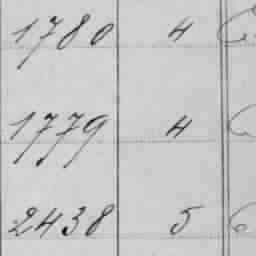 1780 4
1779 4
2438 5